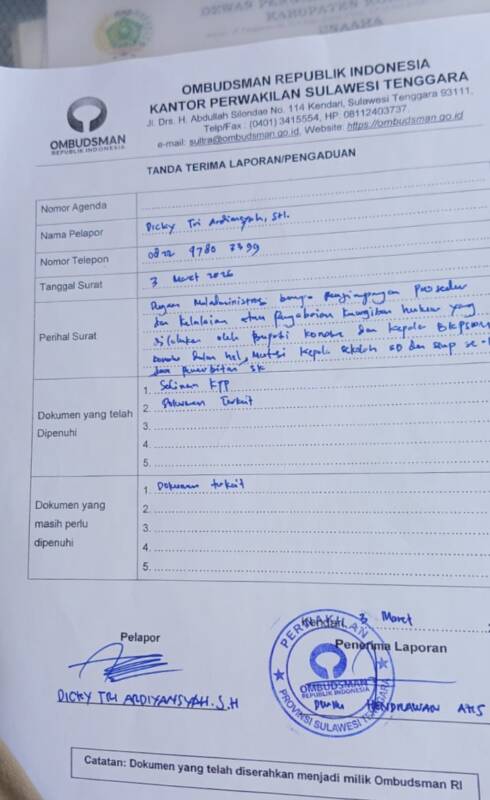 DEWAN PEN
KABUPATEN KO
UNAAHA
OMBUDSMAN
REPUBLIK INDONESIA
OMBUDSMAN REPUBLIK INDONESIA
KANTOR PERWAKILAN SULAWESI TENGGARA
Jl. Drs. H. Abdullah Silondae No. 114 Kendari, Sulawesi Tenggara 93111,
Telp/Fax : (0401) 3415554, HP. 08112403737.
e-mail: sultra@ombudsman.go.id, Website: https://ombudsman.go.id
TANDA TERIMA LAPORAN/PENGADUAN
Nomor Agenda
Nama Pelapor Dicky Tri Ardiansyah, SH.
Nomor Telepon 0822 9780 7399
Tanggal Surat 3 Maret 2026
Perihal Surat
Dugaan Maladministrasi berupa Penyimpangan Prosedur
dan Kelalaian atau Pengabaian Kewajiban hukum yang
dilakukan oleh Bupati konawe dan Kepala BKPSDM
konawe dalam hal, Mutasi Kepala sekolah SD dan SMP se-
dan penerbitan SK
Dokumen yang telah
Dipenuhi
1. Salinan KTP
2. Dokumen Terkait
3.
4.
5.
Dokumen yang
masih perlu
dipenuhi
1. Dokumen terkait
2.
3.
4.
5.
Kendari, 3 Maret
Pelapor
Penerima Laporan
PERWAKILAN
OMBUDSMAN
REPUBLIK INDONESIA
PROVINSI SULAWESI TENGGARA
DICKY TRI ARDIYANSYAH.S.H
HENDRAWAN
Catatan: Dokumen yang telah diserahkan menjadi milik Ombudsman RI